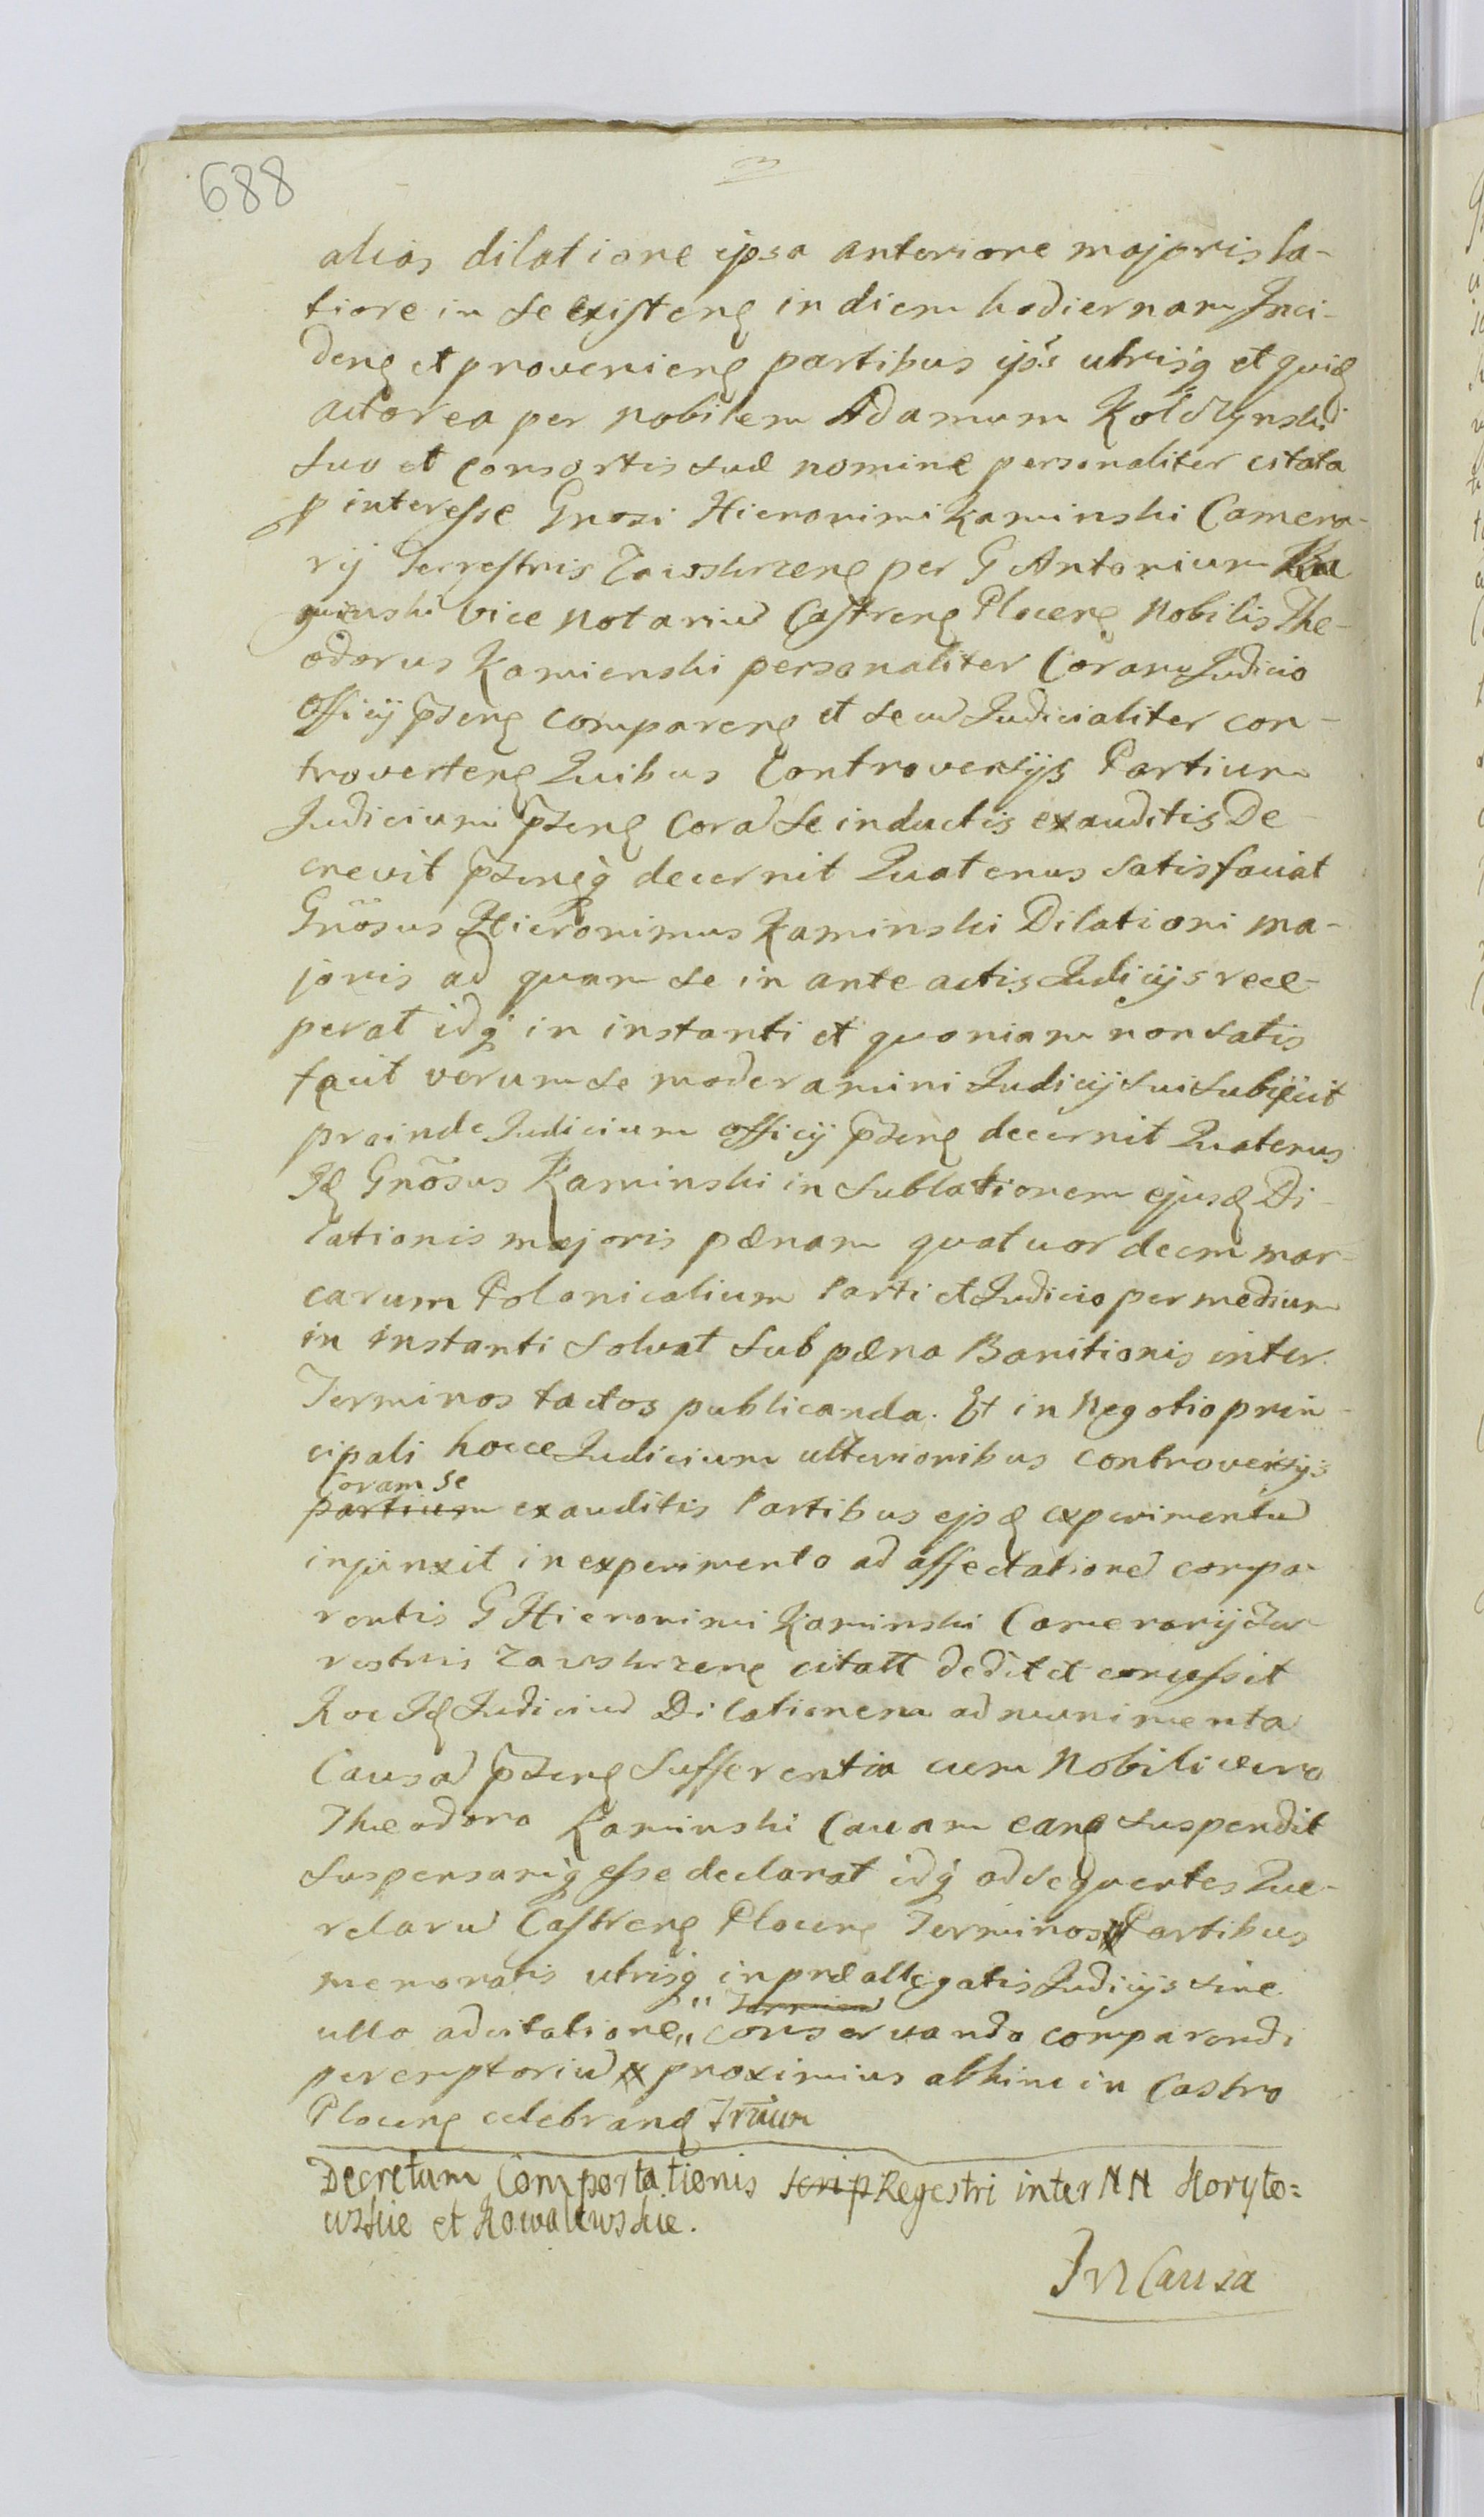 688
alias dilatione ipsa anteriore majoris la-
tiore in se existeng in diem hodiernam Inci-
deng et provenieng partibus ips utrisq et quid
actorea per nobilem Adamum Kołdzynski
suo et consortis suæ nomine personaliter citata
p interesse Gnosi Hieronimi Kaminski Camera-
rij Terrestris Zawskrzeng per G Antonium Ka
minski vice Notariu Castreng Ploceng Nobilis The-
odorus Kamienski personaliter Coram Judicio
Officij pseng compareng et secu Judicialiter con-
troverteng Quibus Controversijs Partium
Judicium pseng Cora Se inductis exauditis De-
crevit psengq decernit Quatenus satisfaciat
Gnosus Hieronimus Kaminski Dilationi ma-
joris ad quam se in ante actis Judicijs rece-
perat idq in instanti et quoniam non satis
facit verum se moderamini Judicij sui subjecit
proinde Judicium officij pseng decernit Quatenus
Id Gnosus Kaminski in sublationem ejusd Di-
lationis majoris pænam quatuordecim mar-
carum Polonicalium Parti et Judicio per medium
in instanti solvat sub pæna Banitionis inter
Terminos tactos publicanda. Et in Negotio prin-
cipali hocce Judicium ulterioribus controversijs
Coram se
partium exauditis Partibus ejsd experimentu
injunxit in experimento ad affectatione compa-
rentis G Hieronimi Kaminski Camerarij Ter-
restris Zawskrzeng citatt dedit et concessit
Hoc Id Judiciu Dilationem ad munimenta
Causa pseng Sufferentia cum Nobili vero
Theodoro Kaminski Causam eand suspendit
suspensamq esse declarat idq ad sequentes Que-
relaru Castreng Ploceng Terminos Partibus
memoratis utrisq in præallegatis Judicijs sine
Terminu
ulla adcitatione conservando comparendi
peremptoriu proximius abhinc in Castro
Ploceng celebrand Trnum
Decretum Comportationis scrip Regestri inter NN Koryto=
wskie et Kowalewskie.
In Causa